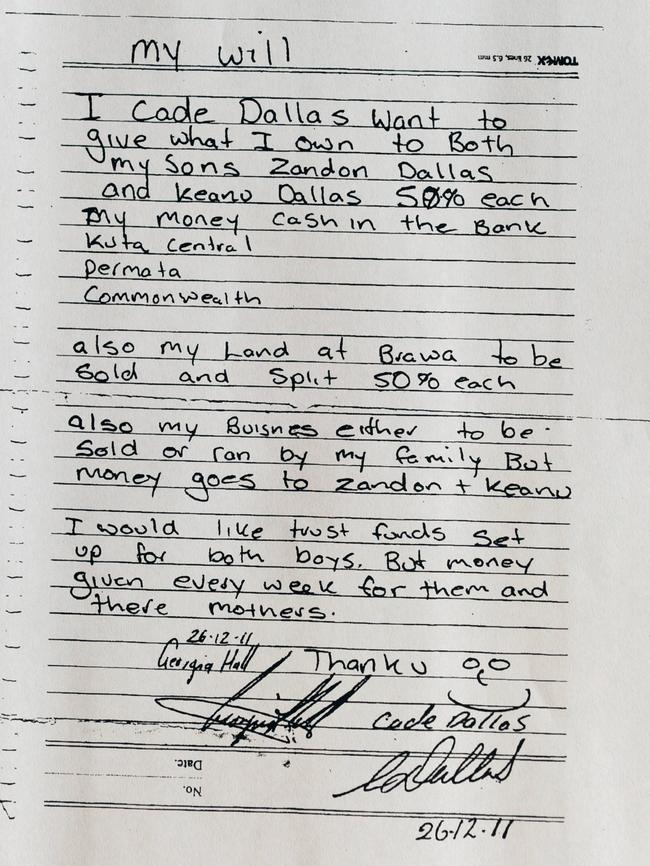 my will
TOMEX 26 lines, 6.5 mm
I Cade Dallas want to
give what I own to Both
my Sons Zandon Dallas
and Keanu Dallas 50% each
my money cash in the Bank
Kuta Central
Permata
Commonwealth
also my Land at Brawa to be
Sold and Split 50% each
also my Buisnes either to be
Sold or ran by my family But
money goes to Zandon + Keanu
I would like trust funds set
up for both boys. But money
given every week for them and
there mothers.
26.12.11
Georgia Hall
Thank u
Cade Dallas
Date:
No.
26.12.11